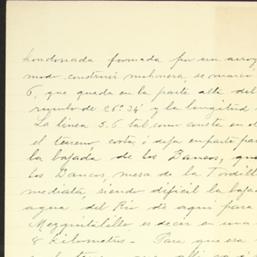 hondonada formada por un arroy
modo construir mohonera, se marcó
6, que queda en la parte alta del
rumbo de 26° 34' y la longitud
La linea 5.6 tal como consta en el
el terreno corta, ó deja en parte para
la bajada de los Bancos, que
los Bancos, mesa de la Tordill
mediata, siendo dificil la bajad
agua del Rio de aqui para
Mezquitalillo es decir en una
8 Kilometros - Para que era